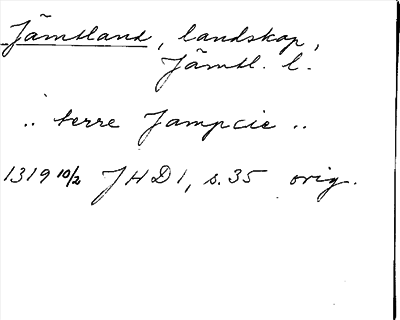 Jämtland, landskap,
Jämtl. l.
.. terre Jampcie ..
1319 10/2 JHD 1, s. 35 orig.